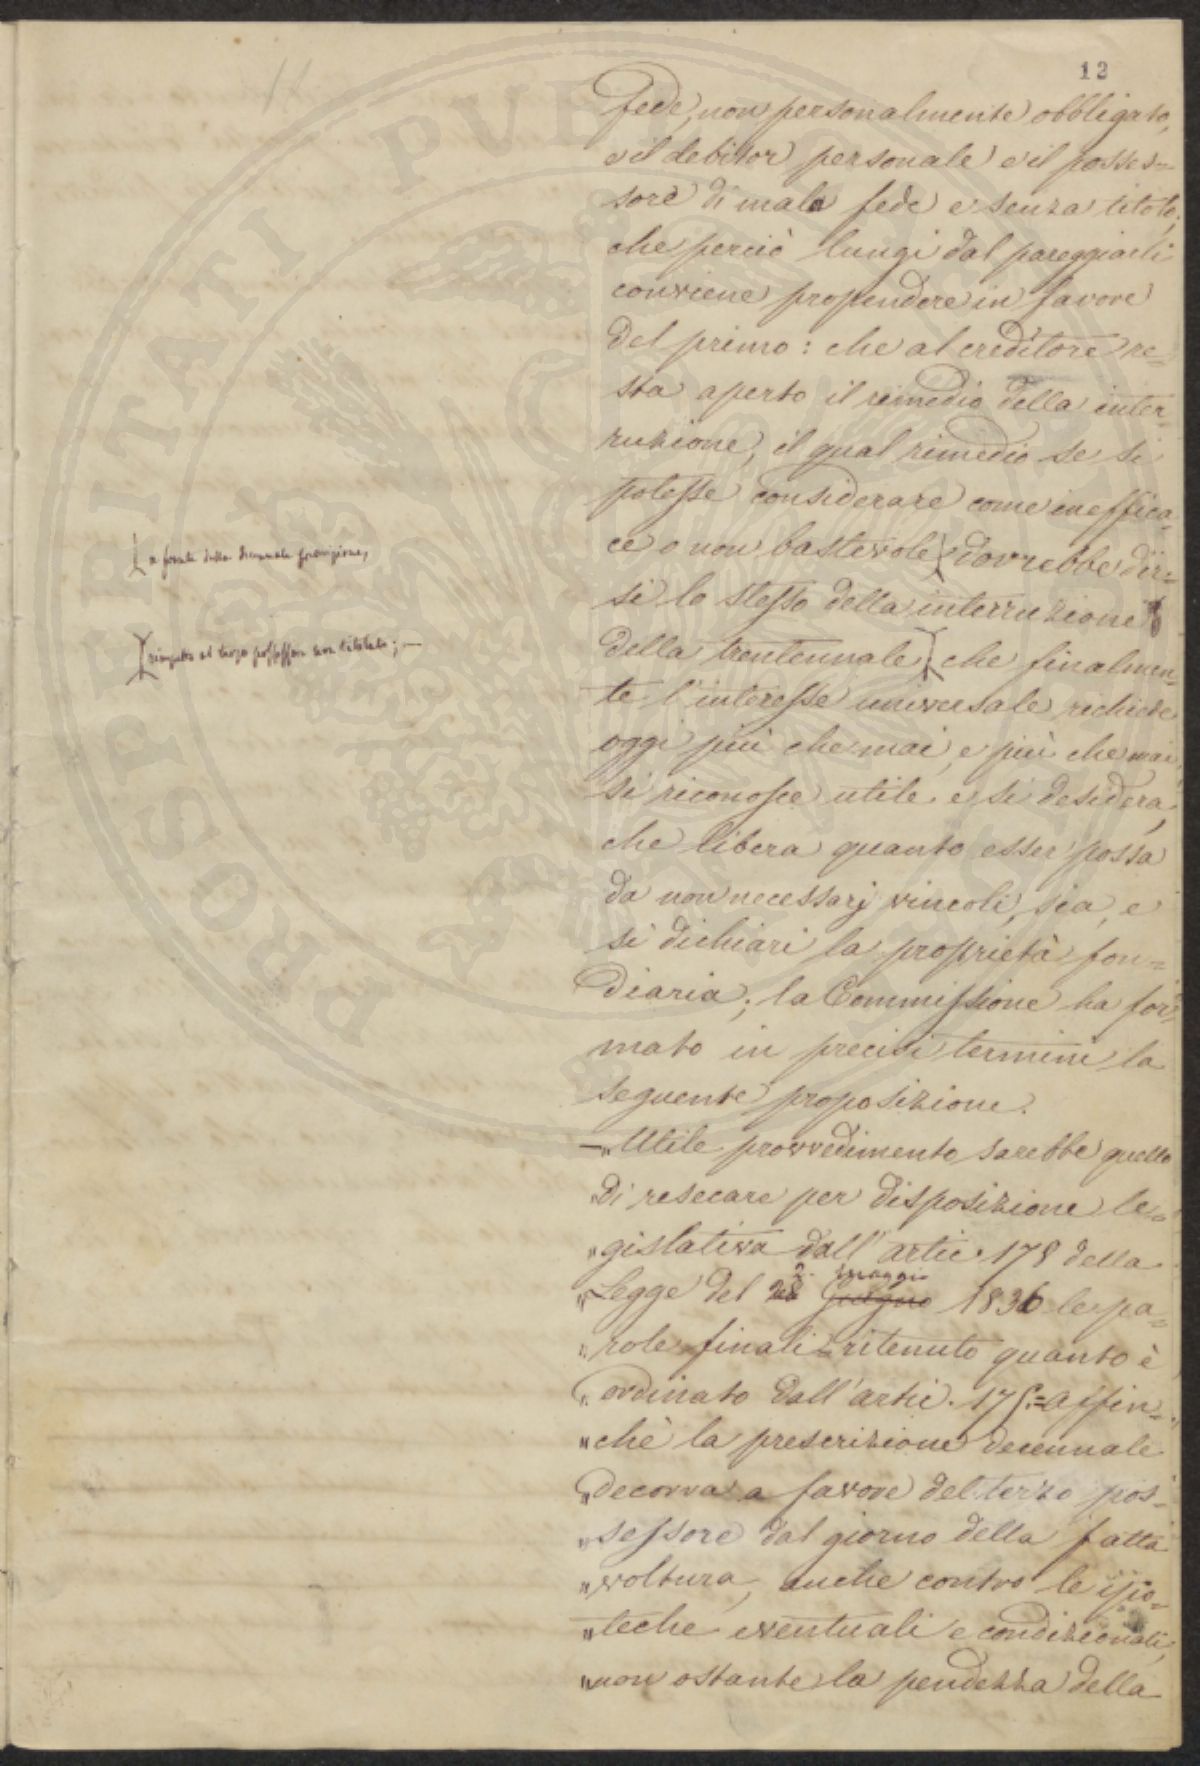 12
fede, non personalmente obbligato,
e il debitor personale e il posses=
sore di mala fede e senza titolo;
che perciò lungi dal pareggiarli
conviene propendere in favore
del primo: che al creditore re=
sta aperto il rimedio della inter=
ruzione, il qual rimedio se si
potesse considerare come ineffica=
ce o non bastevole dovrebbe dir=
si lo stesso della interruzione
della trentennale; che finalmen=
te l'interesse universale richiede
oggi più che mai, e più che mai
si riconosce utile e si desidera,
che libera quanto esser possa
da non necessarj vincoli, sia, e
si dichiari la proprietà fon=
diaria; la Commissione ha for=
mato in precisi termini la
seguente proposizione.
—" Utile provvedimento sarebbe quello
" di resecare per disposizione le=
" gislativa dall'artic. 178 della
2. maggio
" Legge del 28 Giugno 1836 le pa=
" role finali = ritenuto quanto è
" ordinato dall'artic. 175 = affin=
" chè la prescrizione decennale
" decorra a favore del terzo pos=
" sessore dal giorno della fatta
" voltura, anche contro le ipo=
" teche eventuali e condizionali,
" non ostante la pendezza della
a fronte della decennale prescrizione,
rimpetto al terzo possessore non titolato; —
PROSPERITATI